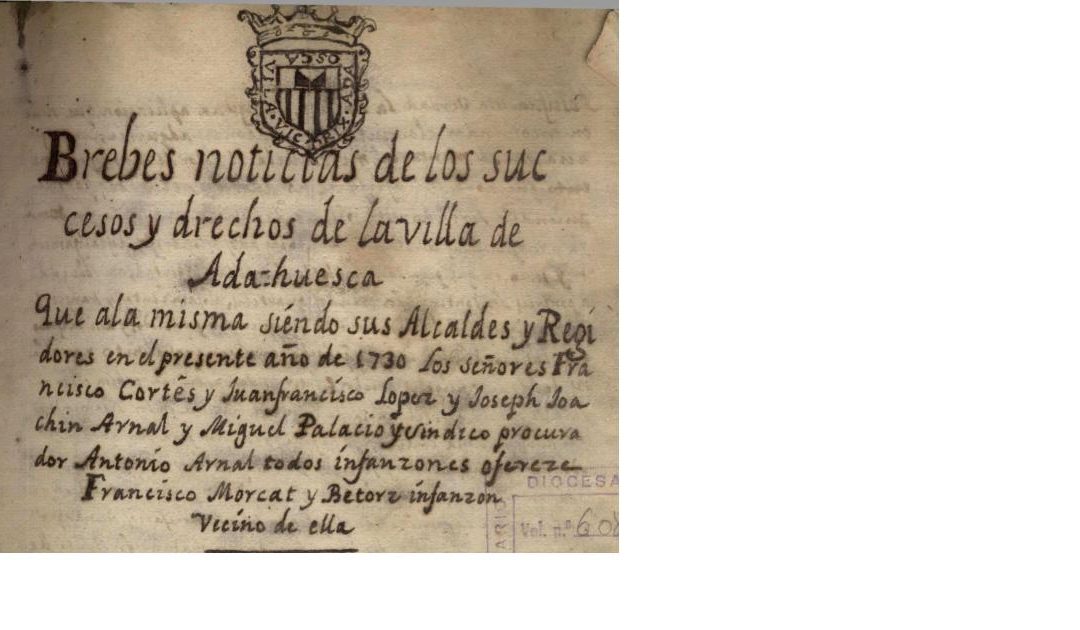 OSCA
VILA VICTRIX ADA
Brebes noticias de los suc
cesos y drechos de la villa de
Ada-huesca
Que ala misma siéndo sus Alcaldes y Regi
dores en el presente año de 1730 Los señores Fra
ncisco Cortês y Juanfrancisco Lopez y Joseph Joa
chin Arnal y Miguel Palacio y sindico procura
dor Antonio Arnal todos infanzones ofereze
Francisco Morcat y Betorz infanzon
Vecino de ella
DIOCESA
ARIO
Vol. n.º 608